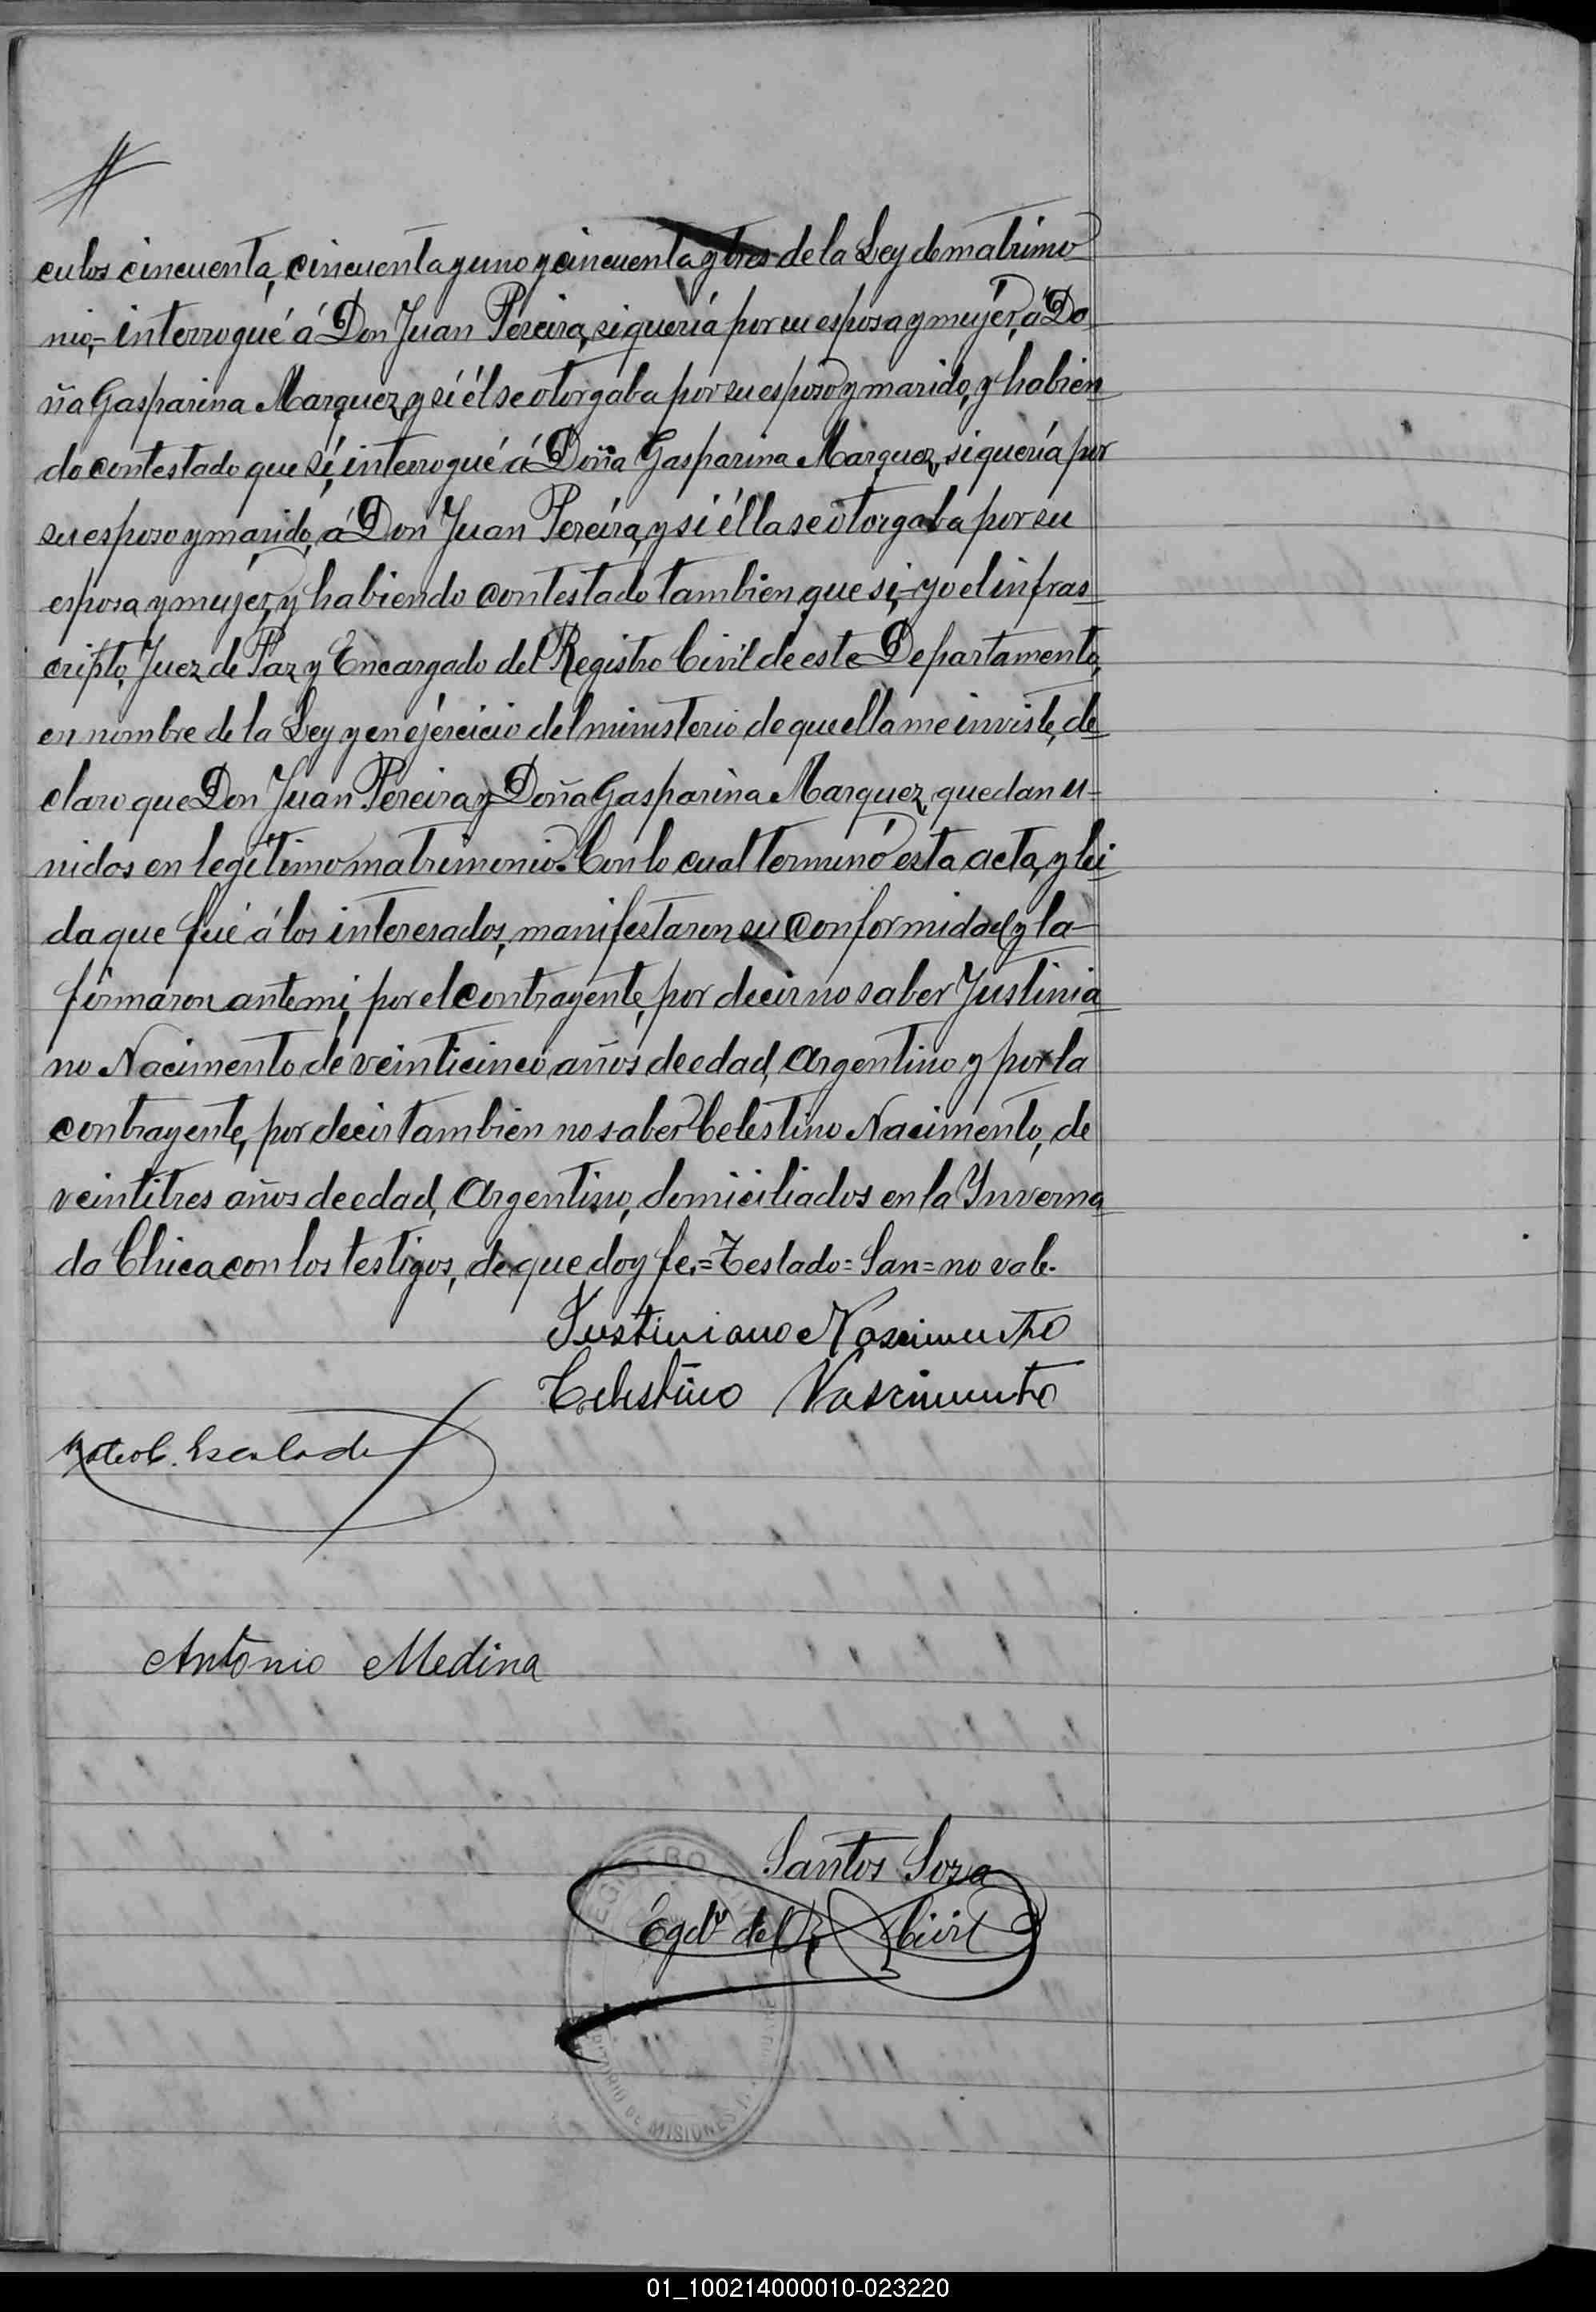 culos cincuenta, cincuenta y uno y cincuenta y tres de la Ley de matrimo
nio,- interrogué á Don Juan Pereira, si quería por su esposa y mujér, á Do
ña Gasparina Marquez, y sí él se otorgaba por su esposo y marido, y habien
do contestado que sí, interrogué á Doña Gasparina Marquez, si quería por
su esposo y marido, á Don Juan Pereira, y si élla se otorgaba por su
esposa y mujer, y habiendo contestado tambien que si,- yo el infras
cripto, Juez de Paz y Encargado del Registro Civil de este Departamento,
en nombre de la Ley y en ejercicio del ministerio de que ella me inviste, de
claro que Don Juan Pereira y Doña Gasparina Marquez, quedan u=
nidos en legítimo matrimonio. Con lo cual terminó esta acta, y lei
da que fué á los interesados, manifestaron su conformidad y la
firmaron ante mi, por el contrayente, por decir no saber Justinia
no Nacimento de veinticinco años de edad, Argentino y por la
contrayente, por decir tambien no saber Celestino Nacimento, de
veintitres años de edad, Argentino, domiciliados en la Inverna
da Chica con los testigos, de que doy fe.= Testado= San= no vale.
Justiniano Nascimento
Celestino Nascimento
Mateo C. Escalada
Antonio Medina
Santos Soza
Egdo del R. Civil
REGISTRO CIVIL
TERRITORIO DE MISIONES
01_100214000010-023220